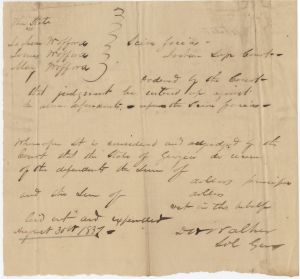 The State
Wofford } Scire facias
James Wofford } Court
May Wofford }
Ordered by the Court
that judgment be entered up against
the above defendants upon the Scire facias
Whereupon it is considered and adjudged by the
Court that the State of Georgia do recover
of the defendants the Sum of
dollars principal
and the Sum of dollars
cost in this behalf
laid out and expended
August 30th 1837
Walker
Sol Gen